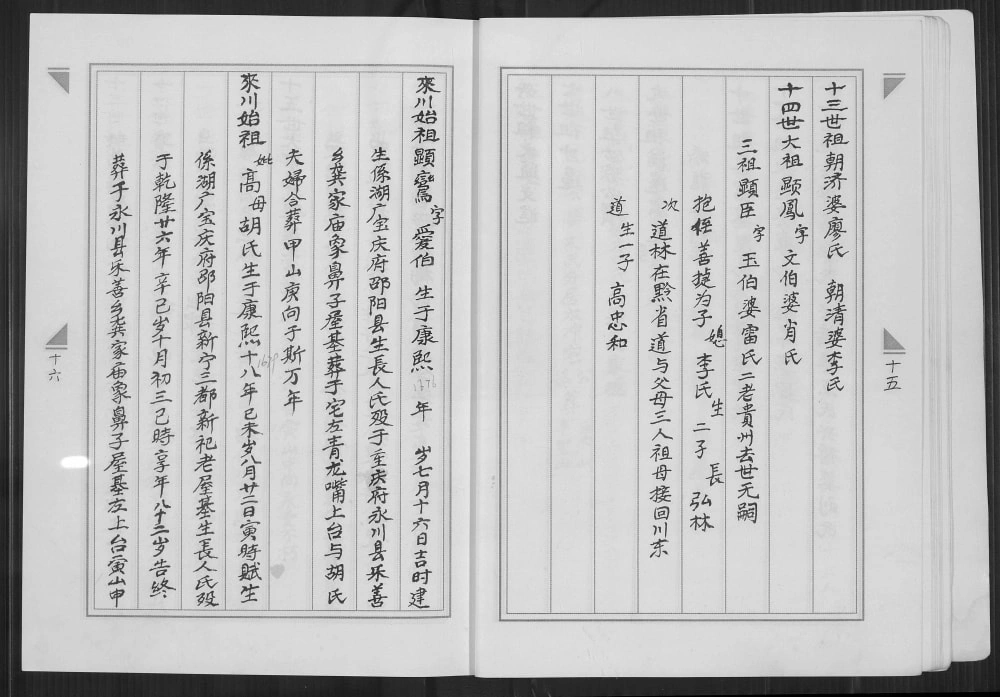 十三世祖朝济婆廖氏 朝清婆李氏
十四世大祖顕鳳字文伯婆肖氏
三祖顕臣字玉伯婆雷氏二老貴州去世无嗣
抱侄善㨗为子媳李氏生二子長弘林
次道林在黔省道与父母三人祖母接回川东
道生一子高忠和
十五
來川始祖顕鸞字愛伯 生于康熙1676年 岁七月十六日吉时建
生係湖广宝庆府邵阳县生長人氏殁于重庆府永川县乐善
乡龚家庙象鼻子屋基葬于宅左青龙嘴上台与胡氏
夫婦合葬甲山庚向子斯万年
來川始祖妣高母胡氏生于康熙十八年1679己未岁八月廿二日寅時賦生
係湖广宝庆府邵阳县新宁三都新祀老屋基生長人氏殁
于乾隆廿六年辛巳岁十月初三己時享年八十三岁告終
葬于永川县乐善乡龚家庙象鼻子屋基左上台寅山申
十六